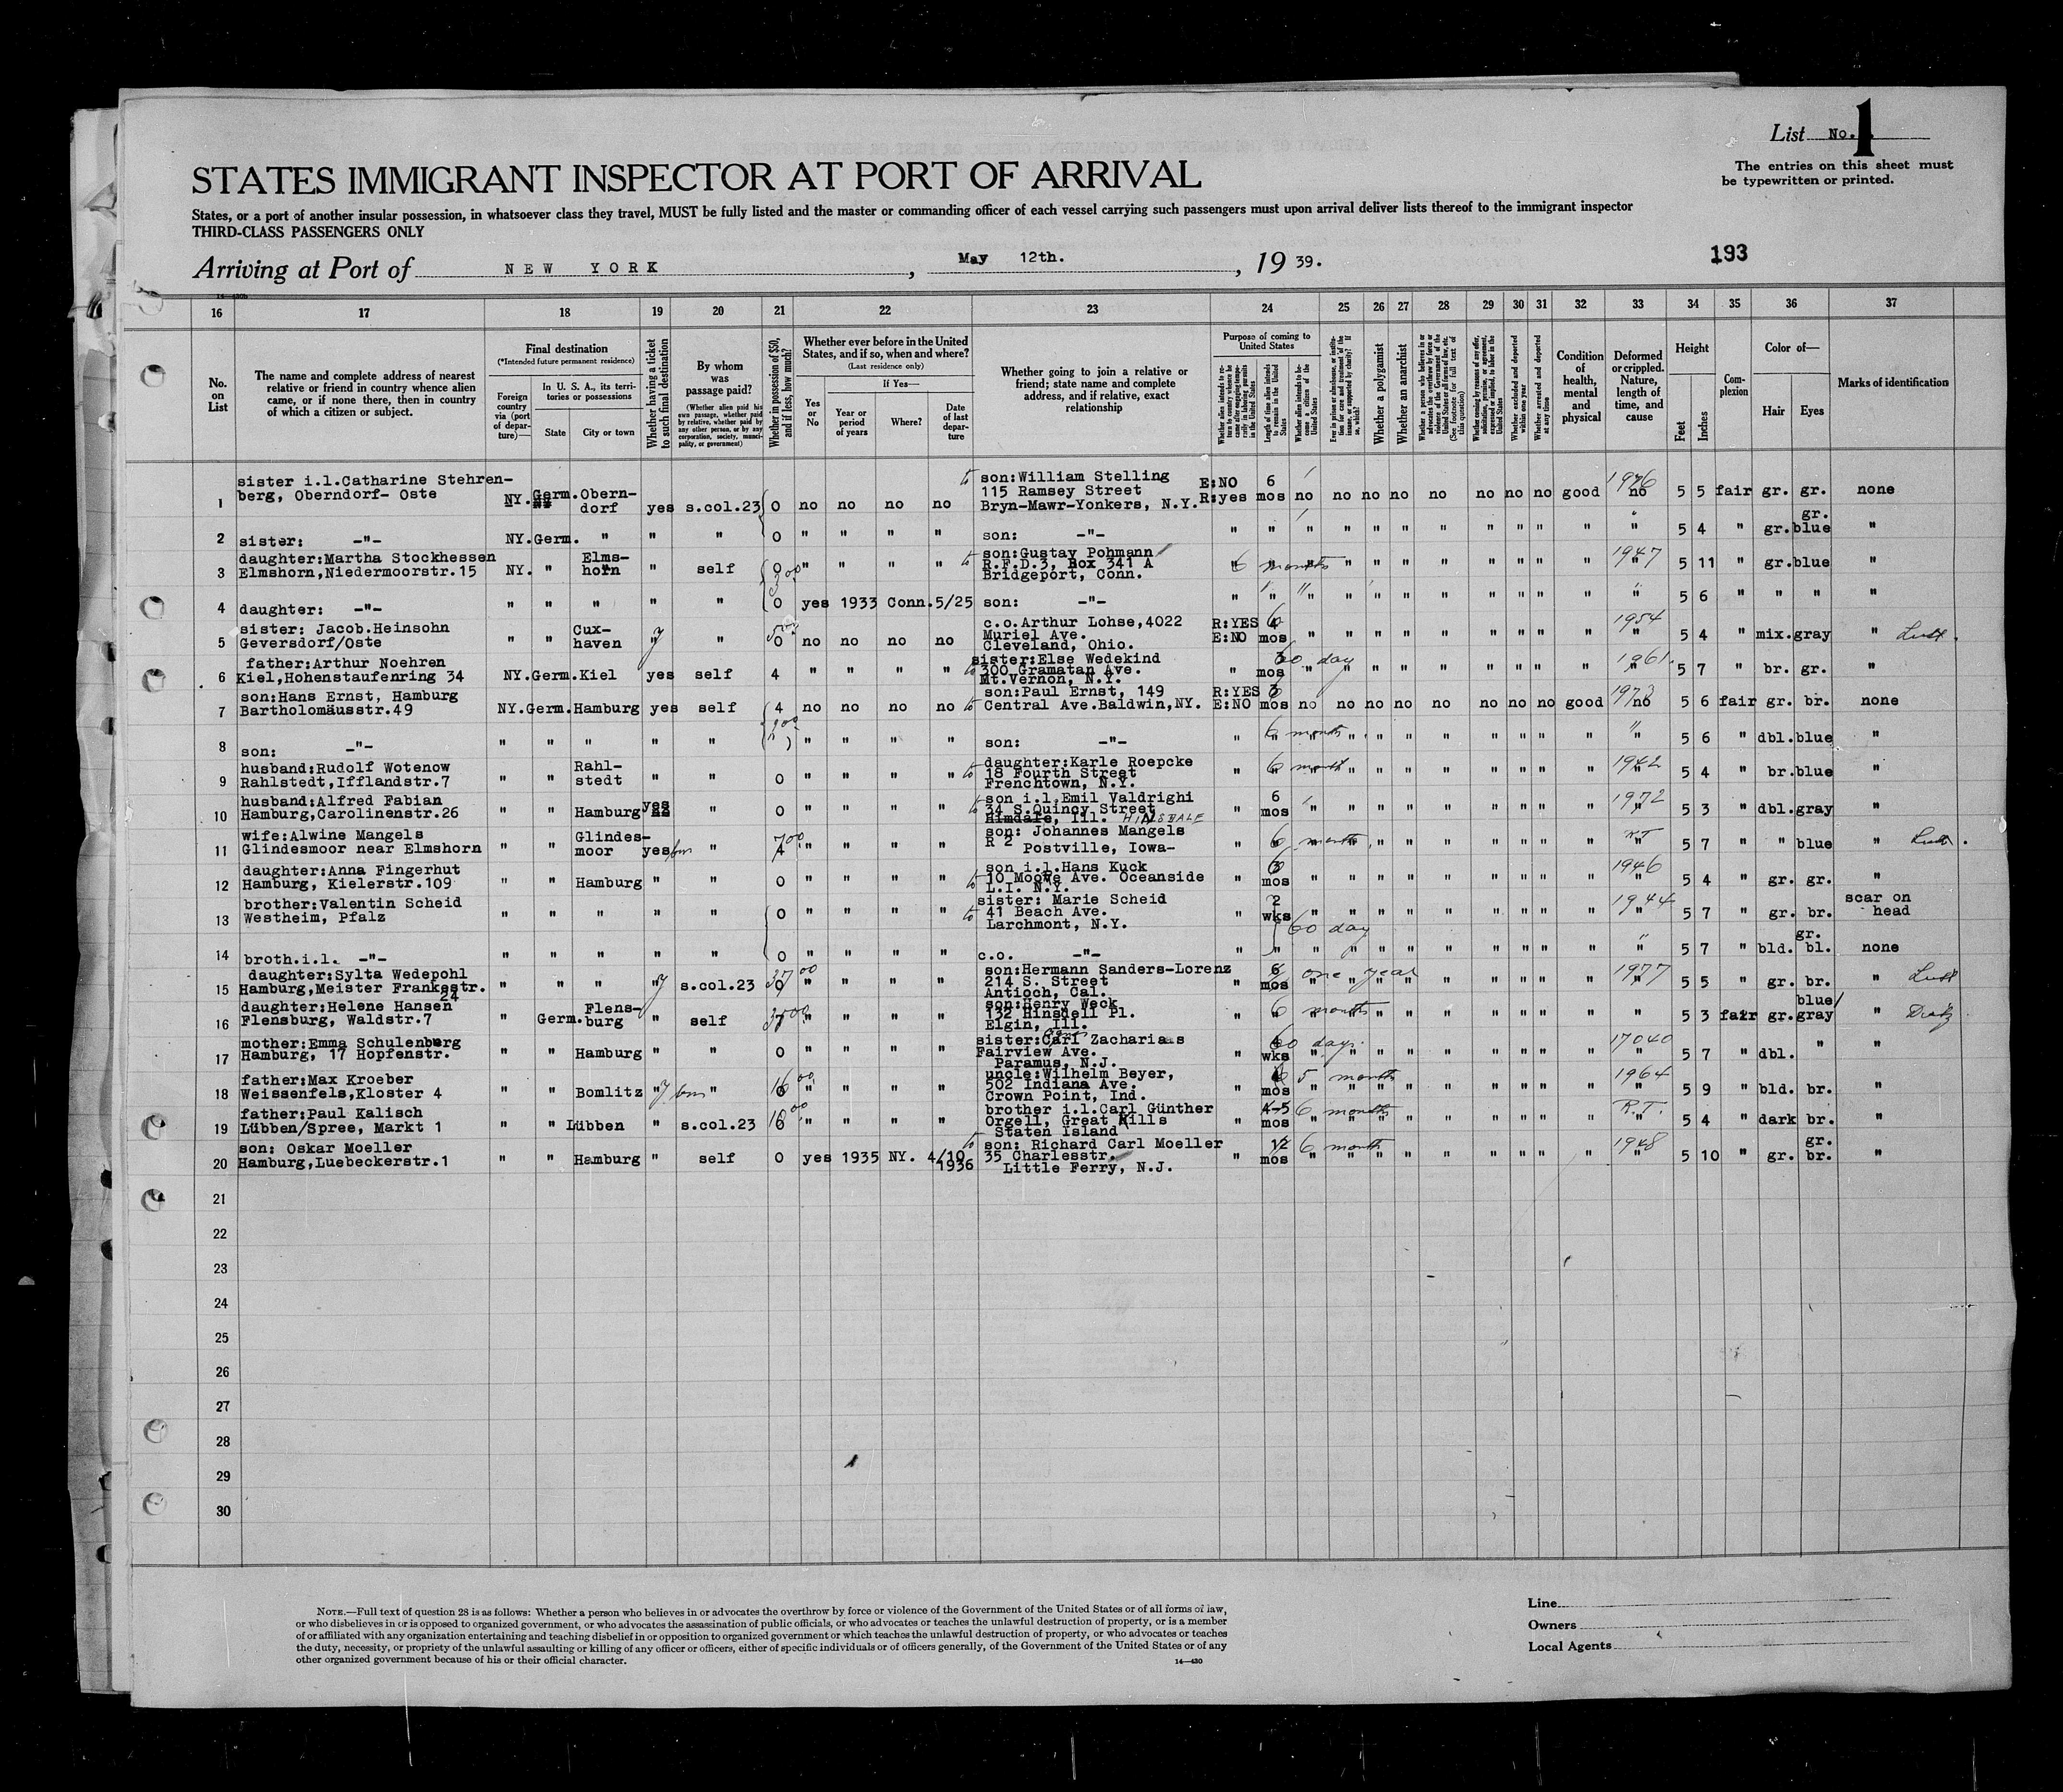 List No. 1
The entries on this sheet must
be typewritten or printed.
STATES IMMIGRANT INSPECTOR AT PORT OF ARRIVAL
States, or a port of another insular possession, in whatsoever class they travel, MUST be fully listed and the master or commanding officer of each vessel carrying such passengers must upon arrival deliver lists thereof to the immigrant inspector
THIRD-CLASS PASSENGERS ONLY
Arriving at Port of NEW YORK, May 12th., 1939.
193
16 17 18 19 20 21 22 23 24 25 26 27 28 29 30 31 32 33 34 35 36 37
No. on List
The name and complete address of nearest relative or friend in country whence alien came, or if none there, then in country of which a citizen or subject.
Final destination
(*Intended future permanent residence)
Foreign country via (port of departure)—
In U. S. A., its territories or possessions
State
City or town
Whether having a ticket to such final destination
By whom was passage paid?
(Whether alien paid his own passage, whether paid by relative, whether paid by any other person, or by any corporation, society, municipality, or government)
Whether in possession of $50, and if less, how much?
Whether ever before in the United States, and if so, when and where?
(Last residence only)
Yes or No
If Yes—
Year or period of years
Where?
Date of last departure
Whether going to join a relative or friend; state name and complete address, and if relative, exact relationship
Purpose of coming to United States
Length of time alien intends to remain in the United States
Whether alien intends to become a citizen of the United States
Whether a polygamist
Whether an anarchist
Whether excluded and deported within one year
Whether arrested and deported at any time
Condition of health, mental and physical
Deformed or crippled. Nature, length of time, and cause
Height
Feet
Inches
Complexion
Color of—
Hair
Eyes
Marks of identification
1 sister i.l.Catharine Stehrenberg, Oberndorf- Oste NY. Germ. Oberndorf yes s.col.23 0 no no no no to son:William Stelling 115 Ramsey Street Bryn-Mawr-Yonkers, N.Y. E:NO R:yes 6 mos no no no no no no no no good 1976 no 5 5 fair gr. gr. none
2 sister: -"- NY.Germ. " " " 0 " " " " son: -"- " " " " " " " " " " " " 5 4 " gr. gr. blue "
3 daughter:Martha Stockhessen Elmshorn,Niedermoorstr.15 NY. " Elmshorn " self 0 " " " " to son:Gustav Pohmann R.F.D.3, Box 341 A Bridgeport, Conn. 6 months " " " " " " " " " 1947 5 11 " gr. blue "
4 daughter: -"- " " " " " 0 yes 1933 Conn. 5/25 son: -"- " " " " " " " " " " " " 5 6 " " " "
5 sister: Jacob.Heinsohn Geversdorf/Oste " " Cuxhaven " " 0 no no no no c.o.Arthur Lohse,4022 Muriel Ave. Cleveland, Ohio. R:YES E:NO mos " " " " " " " " " 1954 5 4 " mix. gray "
6 father:Arthur Noehren Kiel,Hohenstaufenring 34 NY.Germ.Kiel yes self 4 " " " " to sister:Else Wedekind 300 Gramatan Ave. Mt.Vernon, N.Y. " mos 60 day " " " " " " " " 1961 5 7 " br. gr. "
7 son:Hans Ernst, Hamburg Bartholomäusstr.49 NY.Germ.Hamburg yes self 4 no no no no to son:Paul Ernst, 149 Central Ave.Baldwin,NY. R:YES E:NO mos no no no no no no no no good 1973 no 5 6 fair gr. br. none
8 son: -"- " " " " " " " " " son: -"- " 6 months " " " " " " " " " 5 6 " dbl. blue "
9 husband:Rudolf Wotenow Rahlstedt,Ifflandstr.7 " " Rahlstedt " " 0 " " " " to daughter:Karle Roepcke 18 Fourth Street Frenchtown, N.Y. " 6 month " " " " " " " " 1942 5 4 " br. blue "
10 husband:Alfred Fabian Hamburg,Carolinenstr.26 " " Hamburg yes " 0 " " " " to son i.l.Emil Valdrighi 34 S.Quincy Street Himdale, Ill. HINSDALE " 6 mos " " " " " " " " " 1972 5 3 " dbl. gray "
11 wife:Alwine Mangels Glindesmoor near Elmshorn " " Glindesmoor yes " 4 " " " " son: Johannes Mangels R 2 Postville, Iowa- " 6 months " " " " " " " " 5 7 " " blue "
12 daughter:Anna Fingerhut Hamburg, Kielerstr.109 " " Hamburg " " 0 " " " " to son i.l.Hans Kuck 10 Moore Ave. Oceanside L.I. N.Y. " mos " " " " " " " " " 1946 5 4 " gr. gr. "
13 brother:Valentin Scheid Westheim, Pfalz " " " " " 0 " " " " to sister: Marie Scheid 41 Beach Ave. Larchmont, N.Y. " 2 wks " " " " " " " " " 1944 5 7 " gr. br. scar on head
14 broth.i.l. -"- " " " " " 0 " " " " c.o. -"- " 60 day " " " " " " " " " 5 7 " bld. gr. bl. none
15 daughter:Sylta Wedepohl Hamburg,Meister Frankestr. 24 " " " " s.col.23 " " " " son:Hermann Sanders-Lorenz 214 S. Street Antioch, Cal. " 6 mos one year " " " " " " " " 1977 5 5 " gr. br. "
16 daughter:Helene Hansen Flensburg, Waldstr.7 " Germ. Flensburg " self " " " " son:Henry Weck 132 Hinsdell Pl. Elgin, Ill. " 6 months " " " " " " " " 5 3 fair gr. blue/gray "
17 mother:Emma Schulenburg Hamburg, 17 Hopfenstr. " " Hamburg " " 0 " " " " sister:Carl Zacharias Fairview Ave. Paramus, N.J. " wks 60 days " " " " " " " " 17040 5 7 " dbl. " "
18 father:Max Kroeber Weissenfels,Kloster 4 " " Bomlitz " " " " " " uncle:Wilhelm Beyer, 502 Indiana Ave. Crown Point, Ind. " mos 5 months " " " " " " " " 1964 5 9 " bld. br. "
19 father:Paul Kalisch Lübben/Spree, Markt 1 " " Lübben " s.col.23 " " " " brother i.l.Carl Günther Orgell, Great Kills Staten Island " 4-5 mos 6 months " " " " " " " " R.T. 5 4 " dark br. "
20 son: Oskar Moeller Hamburg,Luebeckerstr.1 " " Hamburg " self 0 yes 1935 NY. 4/10 1936 to son: Richard Carl Moeller 35 Charlesstr. Little Ferry, N.J. " mos 6 month " " " " " " " " 1948 5 10 " gr. gr. br. "
21
22
23
24
25
26
27
28
29
30
NOTE.—Full text of question 28 is as follows: Whether a person who believes in or advocates the overthrow by force or violence of the Government of the United States or of all forms of law,
or who disbelieves in or is opposed to organized government, or who advocates the assassination of public officials, or who advocates or teaches the unlawful destruction of property, or is a member
of or affiliated with any organization entertaining and teaching disbelief in or opposition to organized government or which teaches the unlawful destruction of property, or who advocates or teaches
the duty, necessity, or propriety of the unlawful assaulting or killing of any officer or officers, either of specific individuals or of officers generally, of the Government of the United States or of any
other organized government because of his or their official character.
14—430
Line
Owners
Local Agents